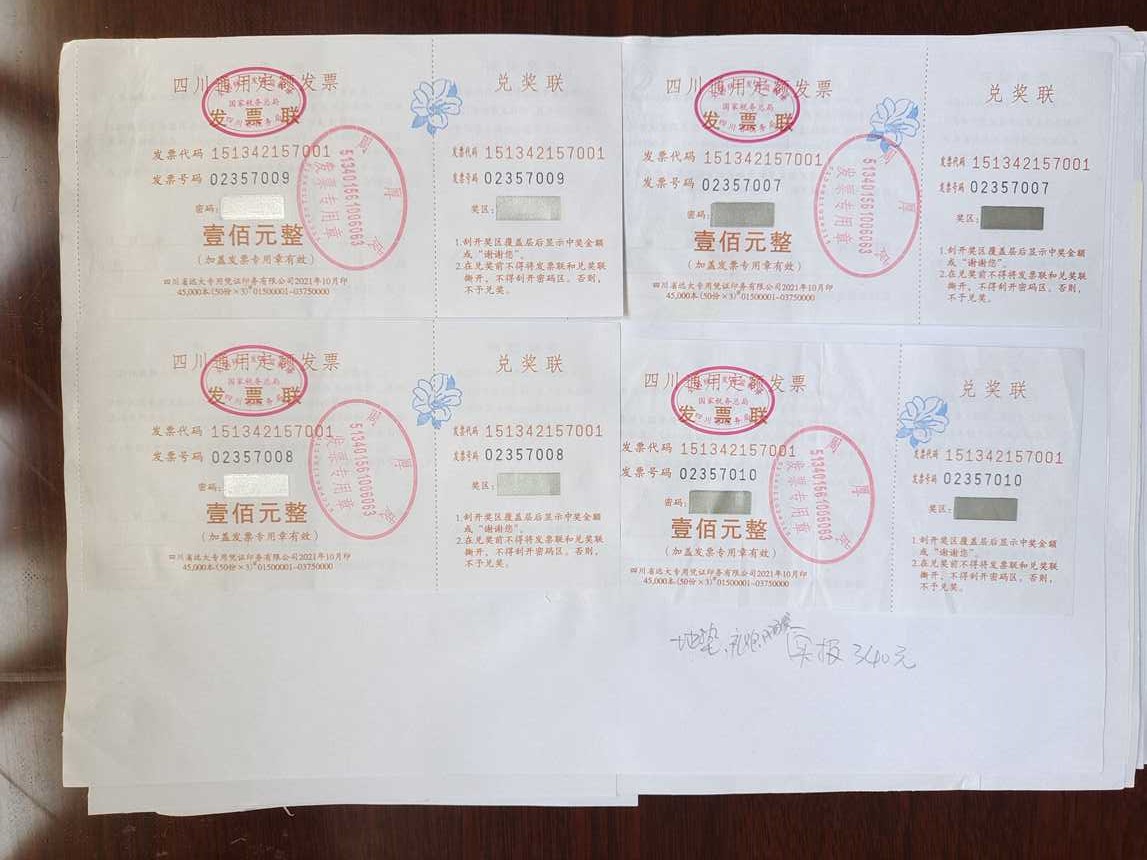 四川通用定额发票
国家税务总局
发票联
发票代码 151342157001
发票号码 02357009
密码:
壹佰元整
(加盖发票专用章有效)
四川省远大专用凭证印务有限公司2021年10月印
45,000本(50份×3)#01500001-03750000
513401561006063
发票专用章
兑奖联
发票代码 151342157001
发票号码 02357009
奖区:
1.刮开奖区覆盖层后显示中奖金额
或“谢谢您”。
2.在兑奖前不得将发票联和兑奖联
撕开,不得刮开密码区。否则,
不予兑奖。
四川通用定额发票
国家税务总局
发票联
发票代码 151342157001
发票号码 02357007
密码:
壹佰元整
(加盖发票专用章有效)
四川省远大专用凭证印务有限公司2021年10月印
45,000本(50份×3)#01500001-03750000
513401561006063
发票专用章
兑奖联
发票代码 151342157001
发票号码 02357007
奖区:
1.刮开奖区覆盖层后显示中奖金额
或“谢谢您”。
2.在兑奖前不得将发票联和兑奖联
撕开,不得刮开密码区。否则,
不予兑奖。
四川通用定额发票
国家税务总局
发票联
发票代码 151342157001
发票号码 02357008
密码:
壹佰元整
(加盖发票专用章有效)
四川省远大专用凭证印务有限公司2021年10月印
45,000本(50份×3)#01500001-03750000
513401561006063
发票专用章
兑奖联
发票代码 151342157001
发票号码 02357008
奖区:
1.刮开奖区覆盖层后显示中奖金额
或“谢谢您”。
2.在兑奖前不得将发票联和兑奖联
撕开,不得刮开密码区。否则,
不予兑奖。
四川通用定额发票
国家税务总局
发票联
发票代码 151342157001
发票号码 02357010
密码:
壹佰元整
(加盖发票专用章有效)
四川省远大专用凭证印务有限公司2021年10月印
45,000本(50份×3)#01500001-03750000
513401561006063
发票专用章
兑奖联
发票代码 151342157001
发票号码 02357010
奖区:
1.刮开奖区覆盖层后显示中奖金额
或“谢谢您”。
2.在兑奖前不得将发票联和兑奖联
撕开,不得刮开密码区。否则,
不予兑奖。
地垫、 实报340元